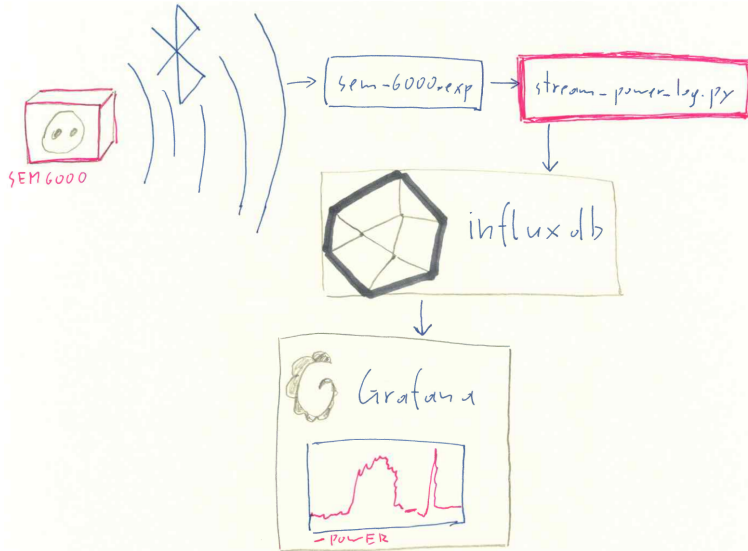 SEM6000
sem-6000.exp
stream_power_log.py
influxdb
Grafana
POWER